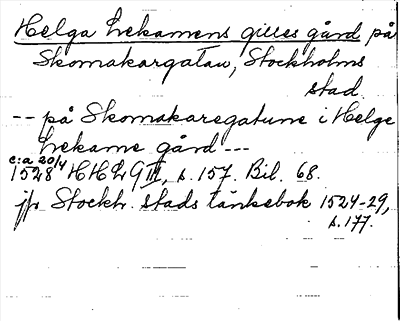 Helga Lekamens gilles gård på
Skomakargatan, Stockholms
stad.
-- på Skomakaregatune i Helge
Lekame gård ---
c:a 20/4
1528 HHL 9 III, s. 157. Bil. 68.
jfr Stockh. stads tänkebok 1524-29,
s. 177.